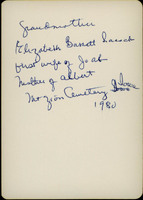 Grandmother
Elizabeth Barrett
first wife of Joab
Mother of Albert
Mt Zion Cemetery
1980